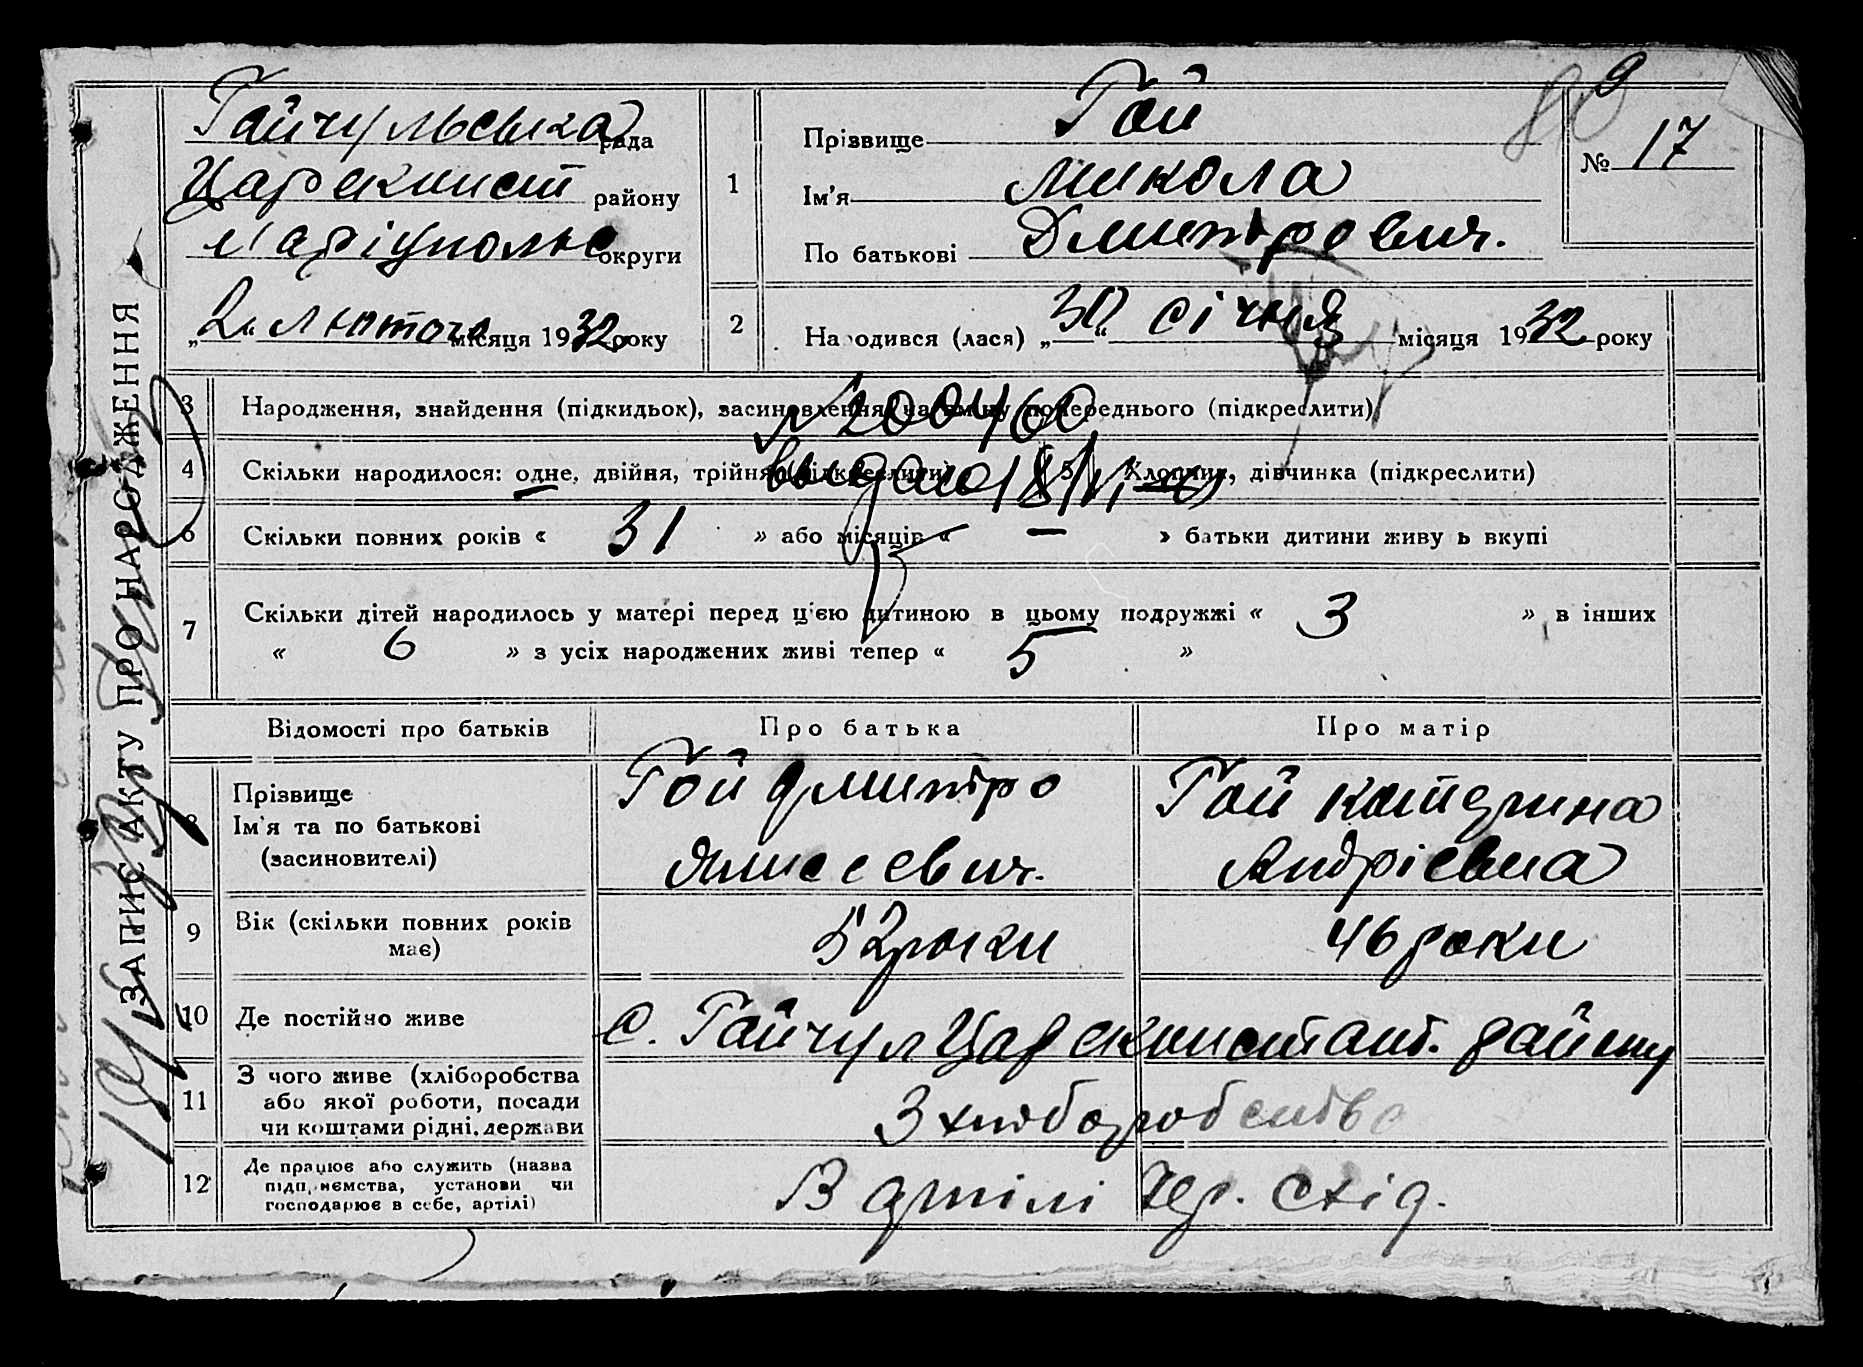 ЗАПИС АКТУ ПРО НАРОДЖЕННЯ
Гайчульська рада
Царекнст району
Маріупольс округи
„2“ лютого місяця 1932 року
1
Прізвище Гой
Ім'я Микола
По батькові Дмитрович.
№ 17
2
Народився (лася) „30“ січня місяця 1932 року
3 Народження, знайдення (підкидьок), засиновлення, на зміну попереднього (підкреслити)
№ 200460
4 Скільки народилося: одне, двійня, трійня (підкреслити) 5 Хлопчик, дівчинка (підкреслити)
6 Скільки повних років « 31 » або місяців « — » батьки дитини живуть вкупі
7 Скільки дітей народилось у матері перед цією дитиною в цьому подружжі « 3 » в інших
« 6 » з усіх народжених живі тепер « 5 »
Відомості про батьків Про батька Про матір
8 Прізвище
Ім'я та по батькові
(засиновителі)
Гой Дмитро
Гой Катерина
Андрієвна
9 Вік (скільки повних років
має)
52 роки 46 роки
10 Де постійно живе с. Гайчул
11 З чого живе (хліборобства
або якої роботи, посади
чи коштами рідні, держави
З хліборобства
12 Де працює або служить (назва
підприємства, установи чи
господарює в себе, артілі)
В артілі Чер. Схід.